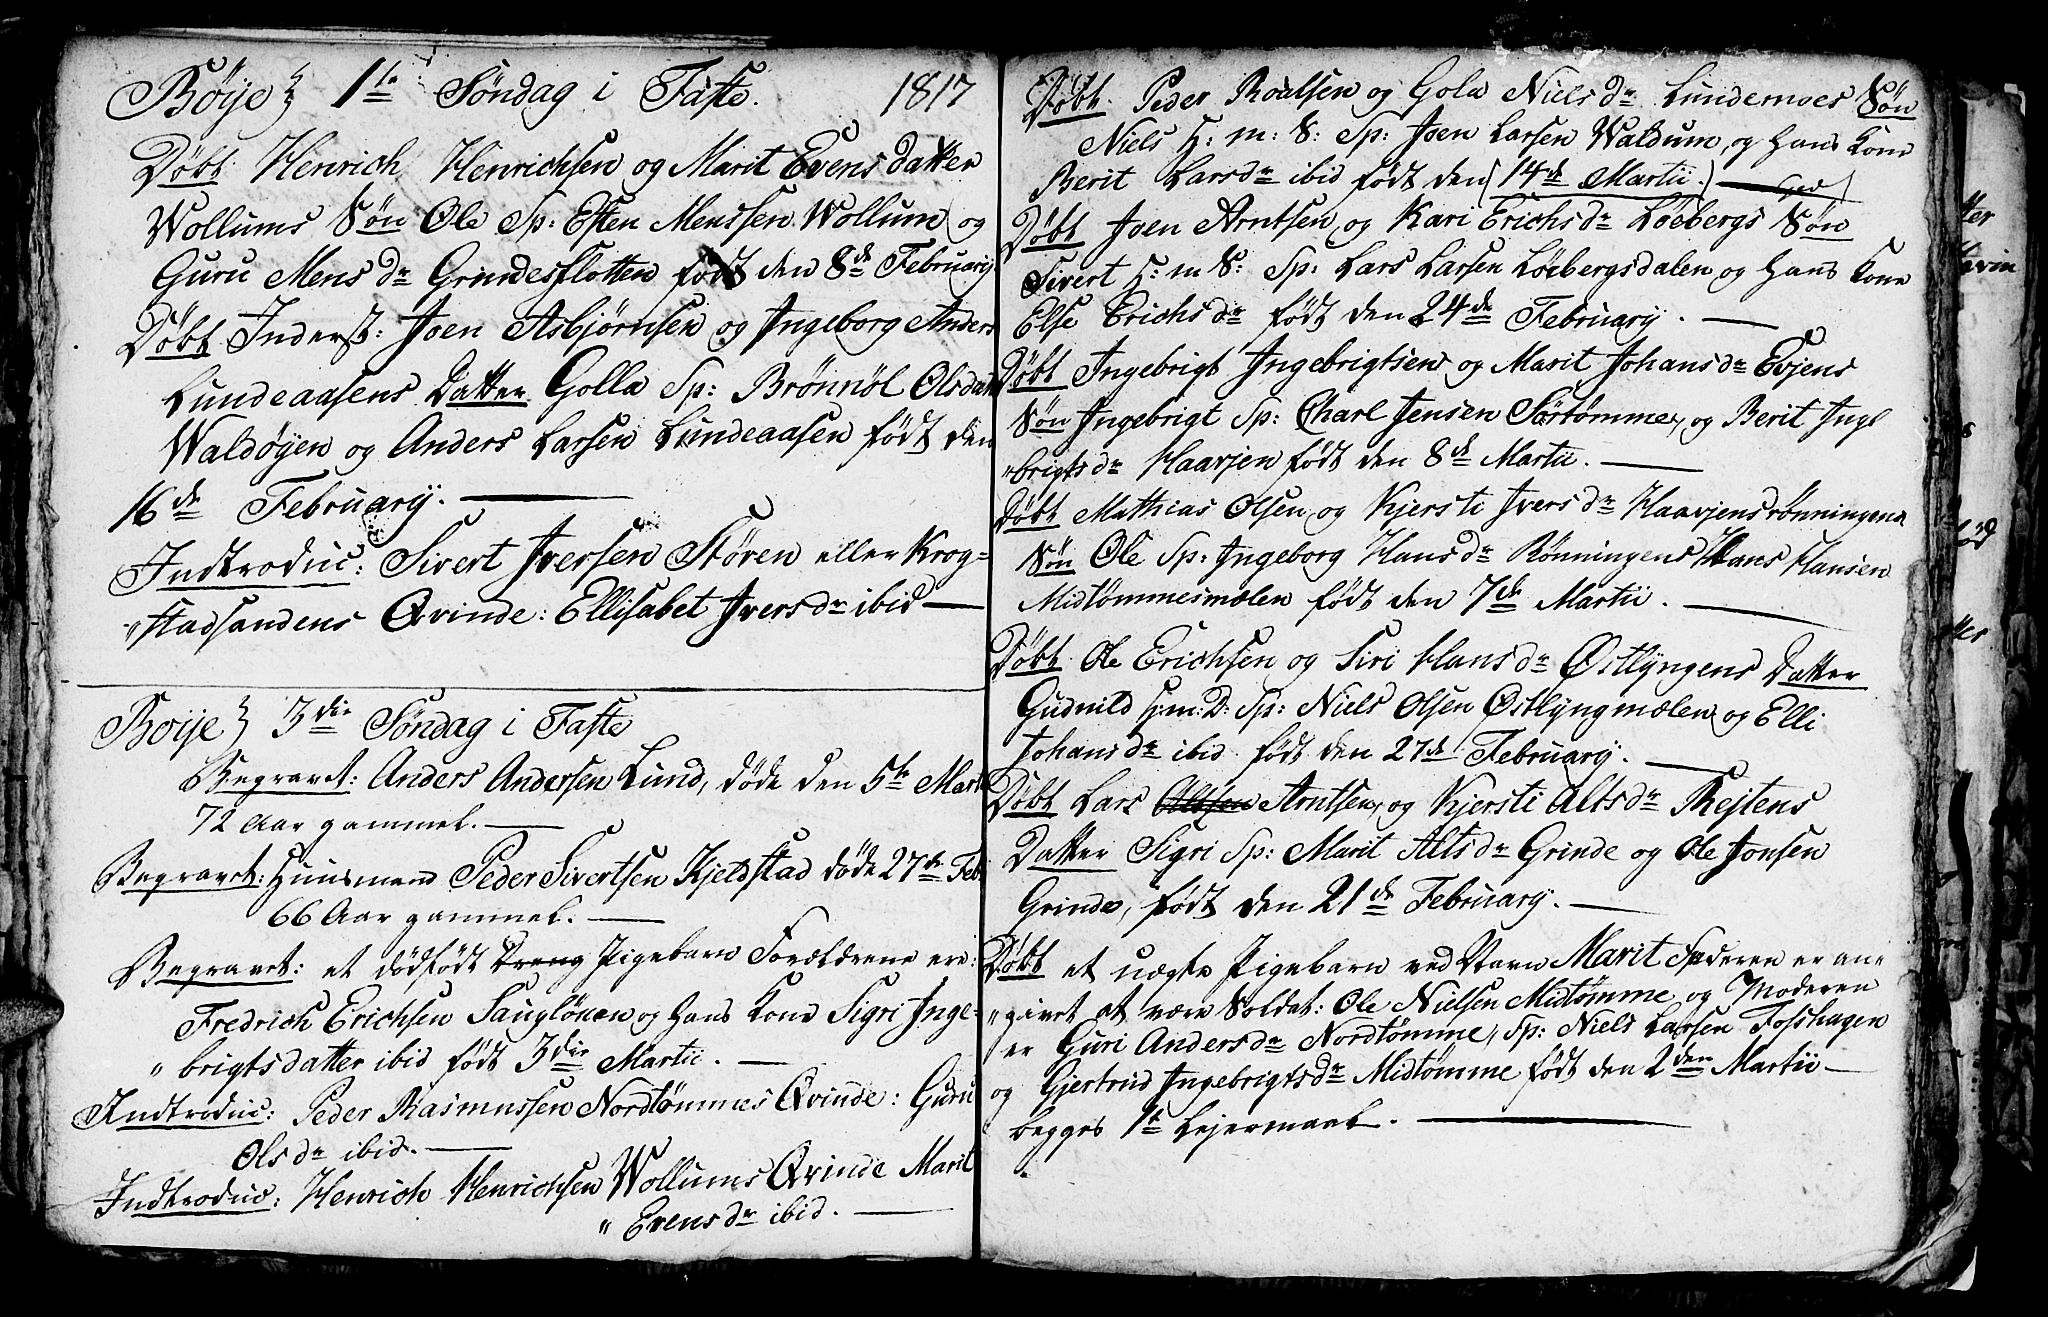 Bøije 1te Søndag i Faste. 1817
Døbt. Henrich Henrichsen og Marit Evens datter
Wollums Søn Ole Sp: Esten Menssen Wollum og
Guru Mens dr Grindesflotten født den 8de February
Døbt Inderst: Joen Asbjørnsen og Ingeborg Anders
Lundeaasens Datter Golla Sp: Brønnøl Olsdatt
Waldøyen og Anders Larsen Lundeaasen født den
16de February.
Indtroduc: Sivert Iversen Støren eller Krog=
"stadsandens Qvinde: Ellisabet Ivers dr ibid
Boije 3die Søndag i Faste
Begravet: Anders Andersen Lund, døde den 5te Mart
72 Aar gammel.
Begravet: Huusmand Peder Sivertsen Kjeldstad døde 27de Feb
66 Aar gammel.
Begravet: et dødfødt Dreng Pigebarn Forældrene ere:
Fredrich Erichsen Saugløkken og hans Kone Sigri Inge=
"brigtsdatter ibid født 3die Martii.
Indtroduc: Peder Rasmussen Nordtømmes Qvinde: Guru
Ols dr ibid.
Indtroduc: Henrich Henrichsen Wollums Qvinde Marit
" Evens dr ibid.
Døbt. Peder Roalsen og Gola Niels dr Lundemoes Søn
Niels H: m: S: Sp: Joen Larsen Waldum og hans Kone
Berit Lars dr ibid født den 14de Martii.
Døbt Joen Arntsen og Kari Erichs dr Løebergs Søn
Sivert H: m S: Sp: Lars Larsen Löebergsdalen og hans Kone
Else Erichs dr født den 24de February.
Døbt Ingebrigt Ingebrigtsen og Marit Johans dr Evjens
Søn Ingebrigt Sp: Charl Jensen Sørtømme, og Berit Inge
"brigts dr Haavjen født den 8de Martii.
Døbt Mathias Olsen og Kjersti Ivers dr Haavjensrønningens
Søn Ole Sp: Ingeborg Hans dr Rønningens Hans Hansen
Midtømmesmælen født den 7de Martii.
Døbt. Ole Erichsen og Siri Hans dr Østlyngens Datter
Gudnild H: m: D: Sp: Niels Olsen Østlyngmælen og Elli
Johans dr ibid født den 27de February.
Døbt Lars Arntsen, og Kjersti Alts dr Rejtens
Datter Sigri Sp: Marit Alts dr Grinde og Ole Jonsen
Grinde, født den 21de February.
Døbt et uægte Pigebarn ved Navn Marit Faderen er an=
"givet at være Soldat: Ole Nielsen Midtømme og Moderen
er Guri Anders dr Nordtømme, Sp: Niels Larsen Foshagen
og Gjertrud Ingebrigts dr Midtømme født den 2den Martii
begges 1te Lejermaal.